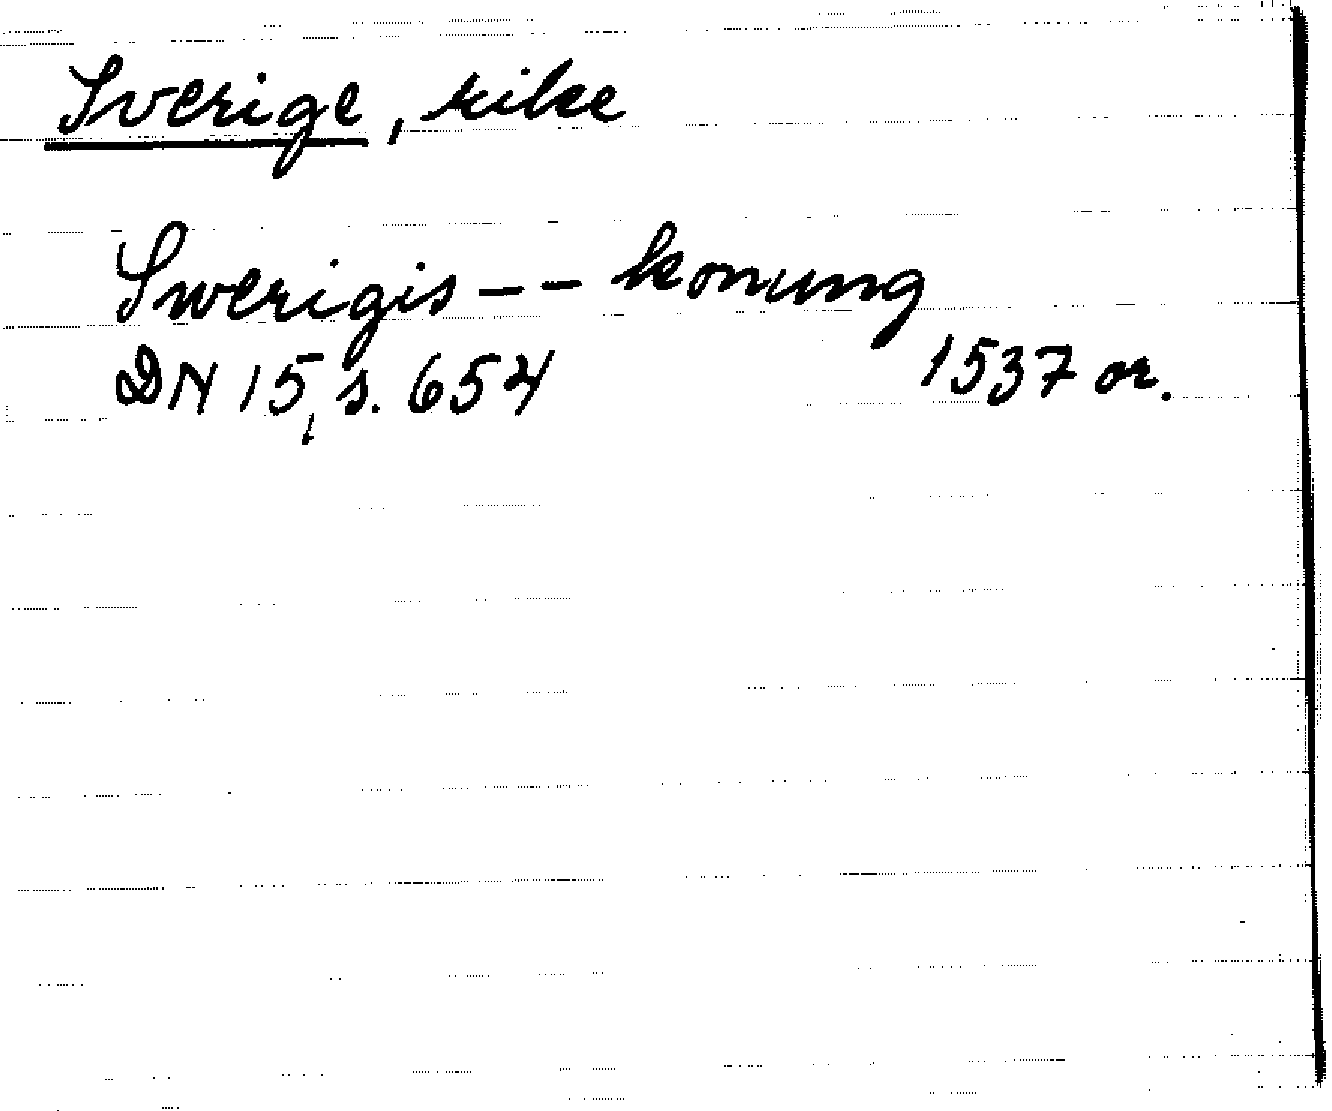 Sverige, rike
Swerigis -- konung
DN 15, s. 654 1537 or.